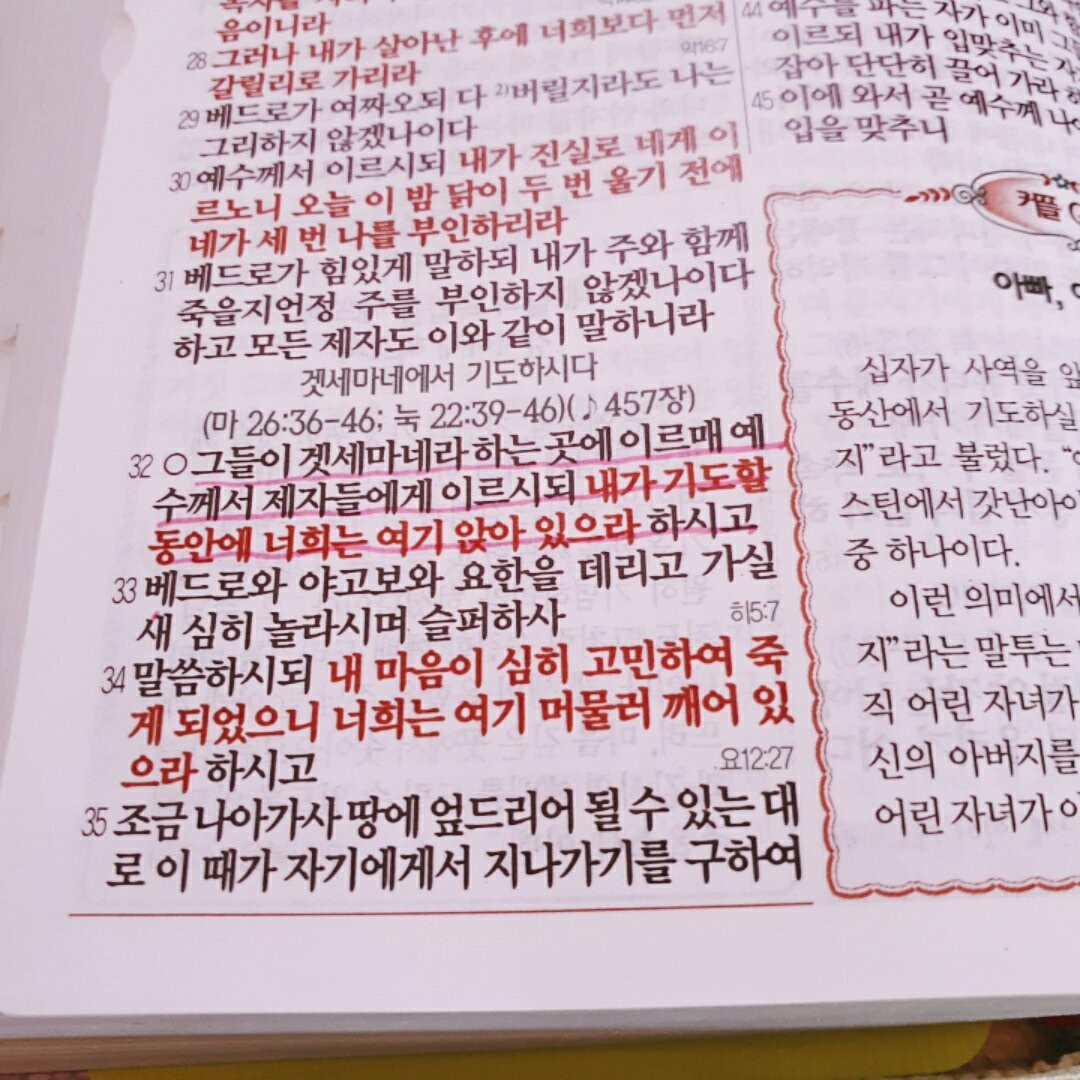 음이니라
28 그러나 내가 살아난 후에 너희보다 먼저
16:7
갈릴리로 가리라
29 베드로가 여짜오되 다 2)버릴지라도 나는
그리하지 않겠나이다
30 예수께서 이르시되 내가 진실로 네게 이
르노니 오늘 이 밤 닭이 두 번 울기 전에
네가 세 번 나를 부인하리라
31 베드로가 힘있게 말하되 내가 주와 함께
죽을지언정 주를 부인하지 않겠나이다
하고 모든 제자도 이와 같이 말하니라
겟세마네에서 기도하시다
(마 26:36-46; 눅 22:39-46)(♪457장)
32 ○그들이 겟세마네라 하는 곳에 이르매 예
수께서 제자들에게 이르시되 내가 기도할
동안에 너희는 여기 앉아 있으라 하시고
33 베드로와 야고보와 요한을 데리고 가실
새 심히 놀라시며 슬퍼하사
히5:7
34 말씀하시되 내 마음이 심히 고민하여 죽
게 되었으니 너희는 여기 머물러 깨어 있
으라 하시고
요12:27
35 조금 나아가사 땅에 엎드리어 될 수 있는 대
로 이 때가 자기에게서 지나가기를 구하여
44 예수를 파는 자가 이미
이르되 내가 입맞추는
잡아 단단히 끌어 가라
45 이에 와서 곧 예수께
입을 맞추니
커플
아빠,
십자가 사역을
동산에서 기도하실
지”라고 불렀다.
스틴에서 갓난아
중 하나이다.
이런 의미에서
지”라는 말투는
직 어린 자녀가
신의 아버지를
어린 자녀가